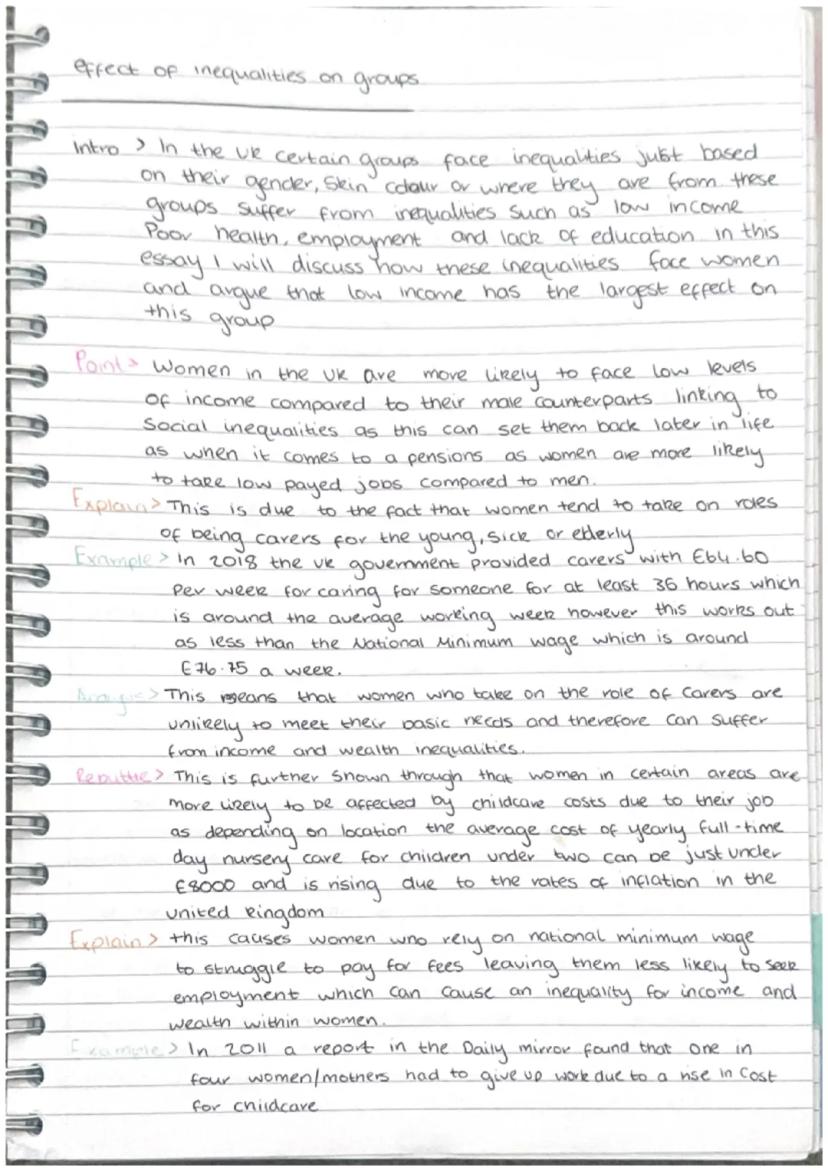 effect of inequalities on groups
Intro > In the UK certain groups face inequalities just based
on their gender, skin colour or where they are from these
groups suffer from inequalities such as low income
Poor health, employment and lack of education in this
essay I will discuss how these inequalities face women
and argue that low income has the largest effect on
this group
Point > Women in the UK are more likely to face low levels
of income compared to their male counterparts linking to
Social inequalities as this can set them back later in life
as when it comes to a pensions as women are more likely
to take low payed jobs compared to men.
Explain > This is due to the fact that women tend to take on roles
of being carers for the young, sick or elderly
Example > In 2018 the UK government provided carers with £64.60
per week for caring for someone for at least 36 hours which
is around the average working week however this works out
as less than the National Minimum wage which is around
£76.75 a week.
Analysis > This means that women who take on the role of carers are
unlikely to meet their basic needs and therefore can suffer
from income and wealth inequalities.
Reputtle > This is further shown through that women in certain areas are
more likely to be affected by childcare costs due to their job
as depending on location the average cost of yearly full-time
day nursery care for children under two can be just under
£8000 and is rising due to the rates of inflation in the
united kingdom
Explain > this causes women who rely on national minimum wage
to struggle to pay for fees leaving them less likely to seek
employment which can cause an inequality for income and
wealth within women.
Example > In 2011 a report in the Daily mirror found that one in
four women/mothers had to give up work due to a rise in cost
for childcare